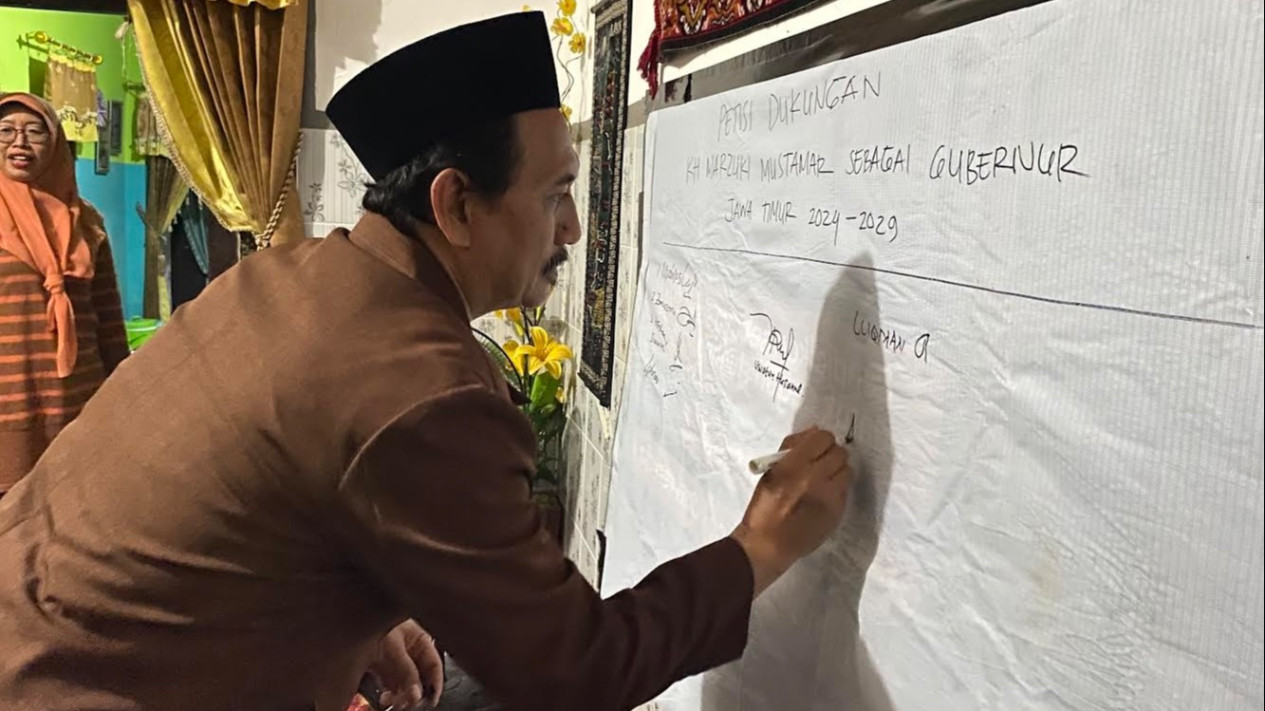 PETISI DUKUNGAN
KH MARZUKI MUSTAMAR SEBAGAI GUBERNUR
JAWA TIMUR 2024-2029
LUQMAN